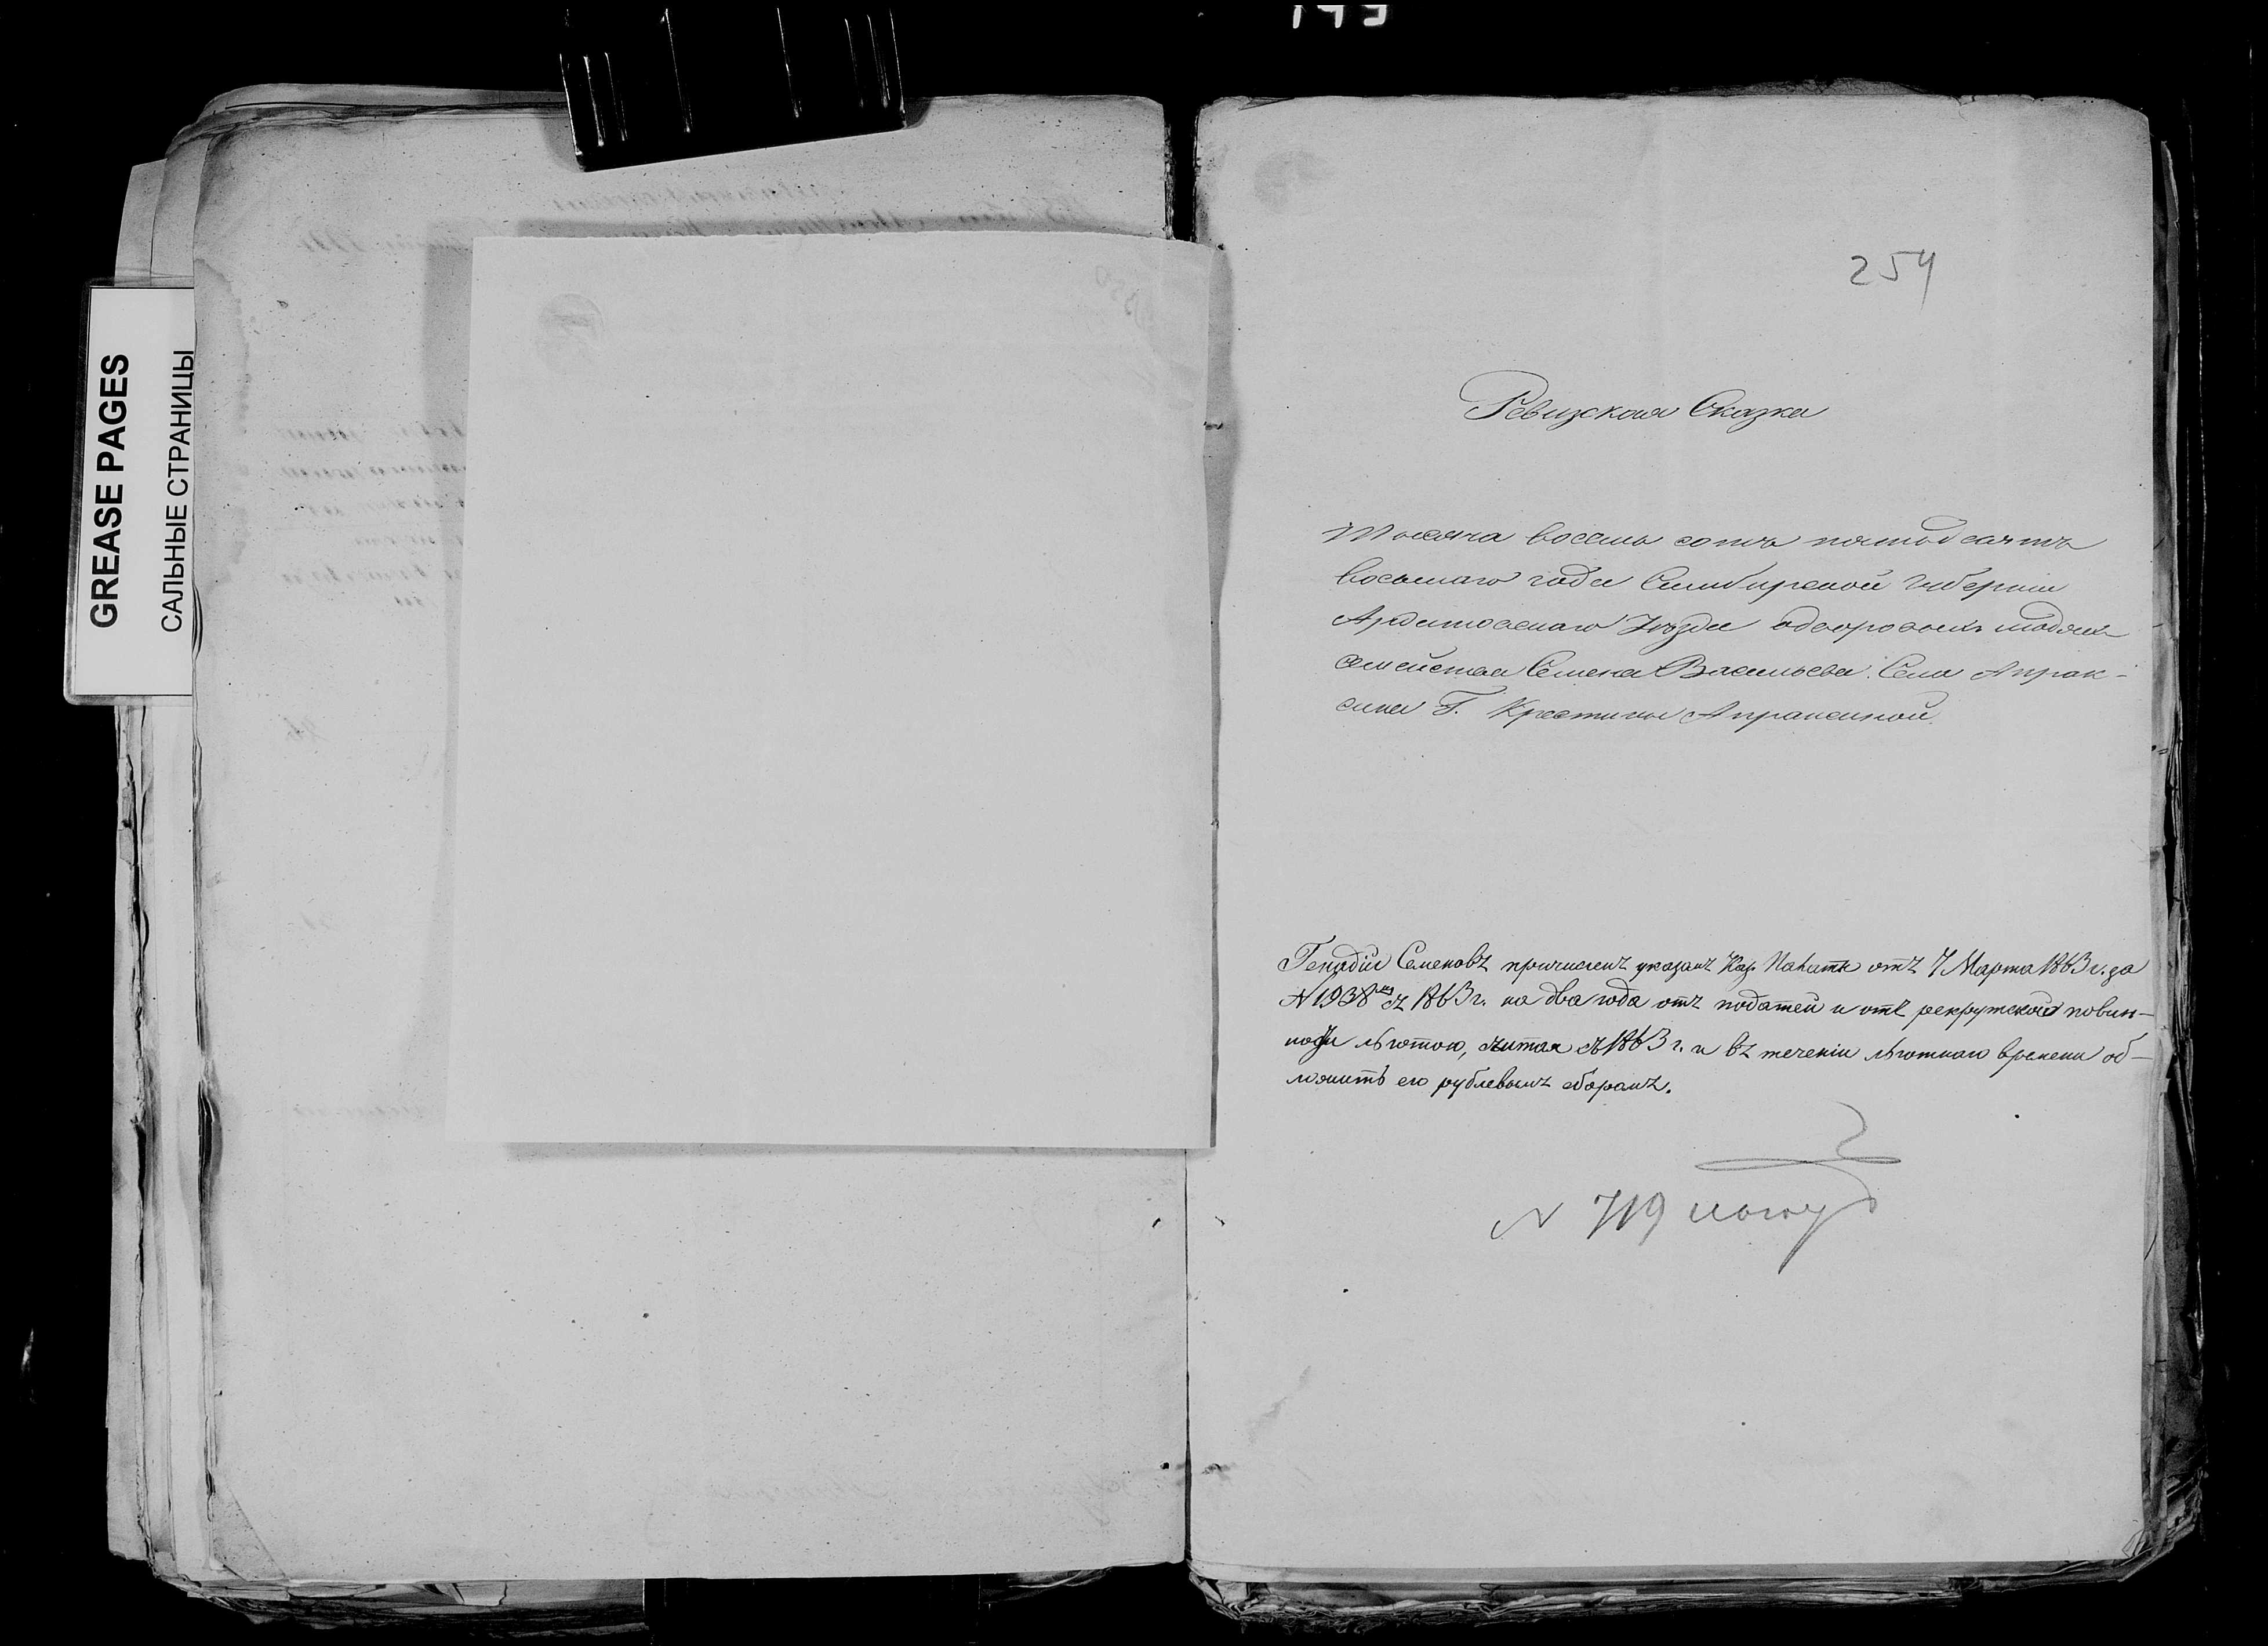 GREASE PAGES
САЛЬНЫЕ СТРАНИЦЫ
254
Ревизская Сказка
Тысяча восемь сотъ пятьдесятъ
восьмаго года Симбирской Губерніи
Ардатовскаго Уѣзда одворовыхъ людяхъ
семейства Семена Васильева. Села Апрак-
сина Г. Крестины Апраксиной.
Генадій Семеновъ причисленъ указомъ Каз. Палаты отъ 7 Марта 1863 г. за
№ 1938 съ 1863 г. на два года отъ податей и отъ рекрутской повин-
ности льготою, считая съ 1863 г. и въ теченіи льготнаго времени об-
ложить его рублевымъ сборомъ.
№ 719